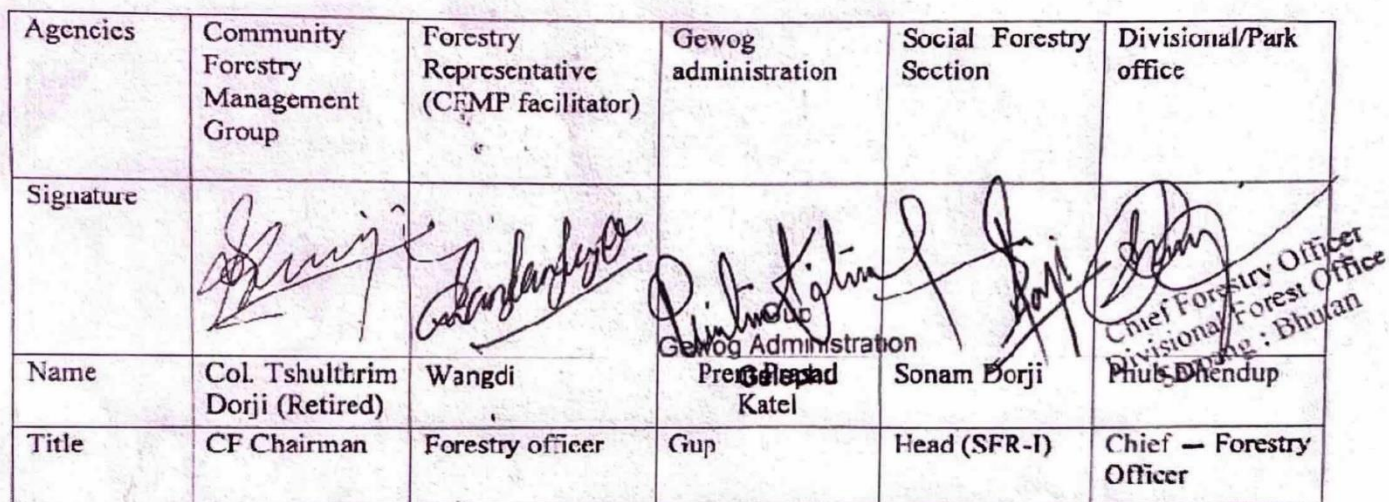 Agencies
Community
Forestry
Management
Group
Forestry
Representative
(CFMP facilitator)
Gewog
administration
Social Forestry
Section
Divisional/Park
office
Signature
Gup
Gewog Administration
Gelephu
Chief Forestry Officer
Divisional Forest Office
Sarpang : Bhutan
Name
Col. Tshulthrim
Dorji (Retired)
Wangdi
Prem Prasad
Katel
Sonam Dorji
Phub Dhendup
Title
CF Chairman
Forestry officer
Gup
Head (SFR-I)
Chief — Forestry
Officer